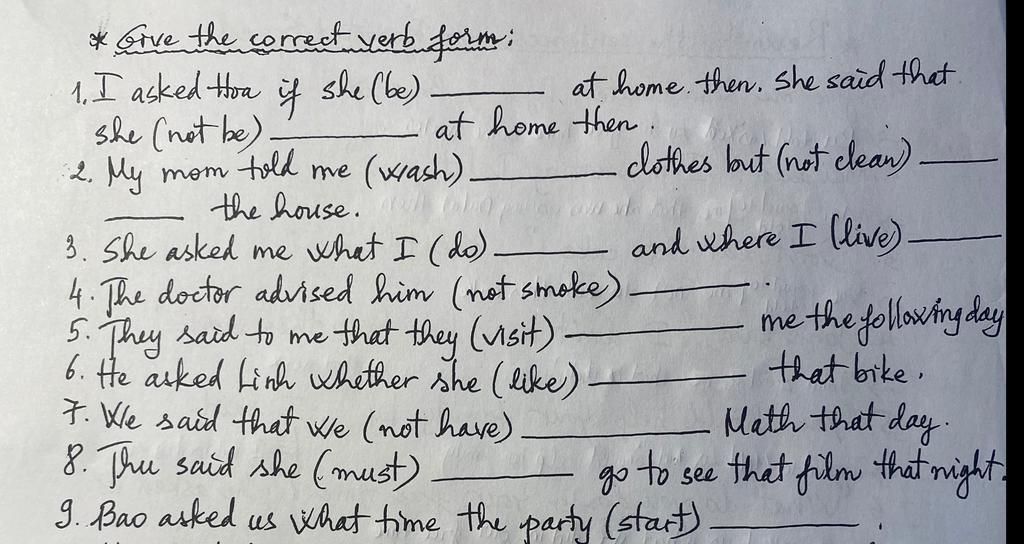 * Give the correct verb form:
1. I asked Hoa if she (be) ________ at home then. She said that
she (not be) ________ at home then.
2. My mom told me (wash) ________ clothes but (not clean) ____
____ the house.
3. She asked me what I (do) ________ and where I (live) ________
4. The doctor advised him (not smoke) ________.
5. They said to me that they (visit) ________ me the following day
6. He asked Linh whether she (like) ________ that bike.
7. We said that we (not have) ________ Math that day.
8. Thu said she (must) ________ go to see that film that night.
9. Bao asked us what time the party (start) ________.